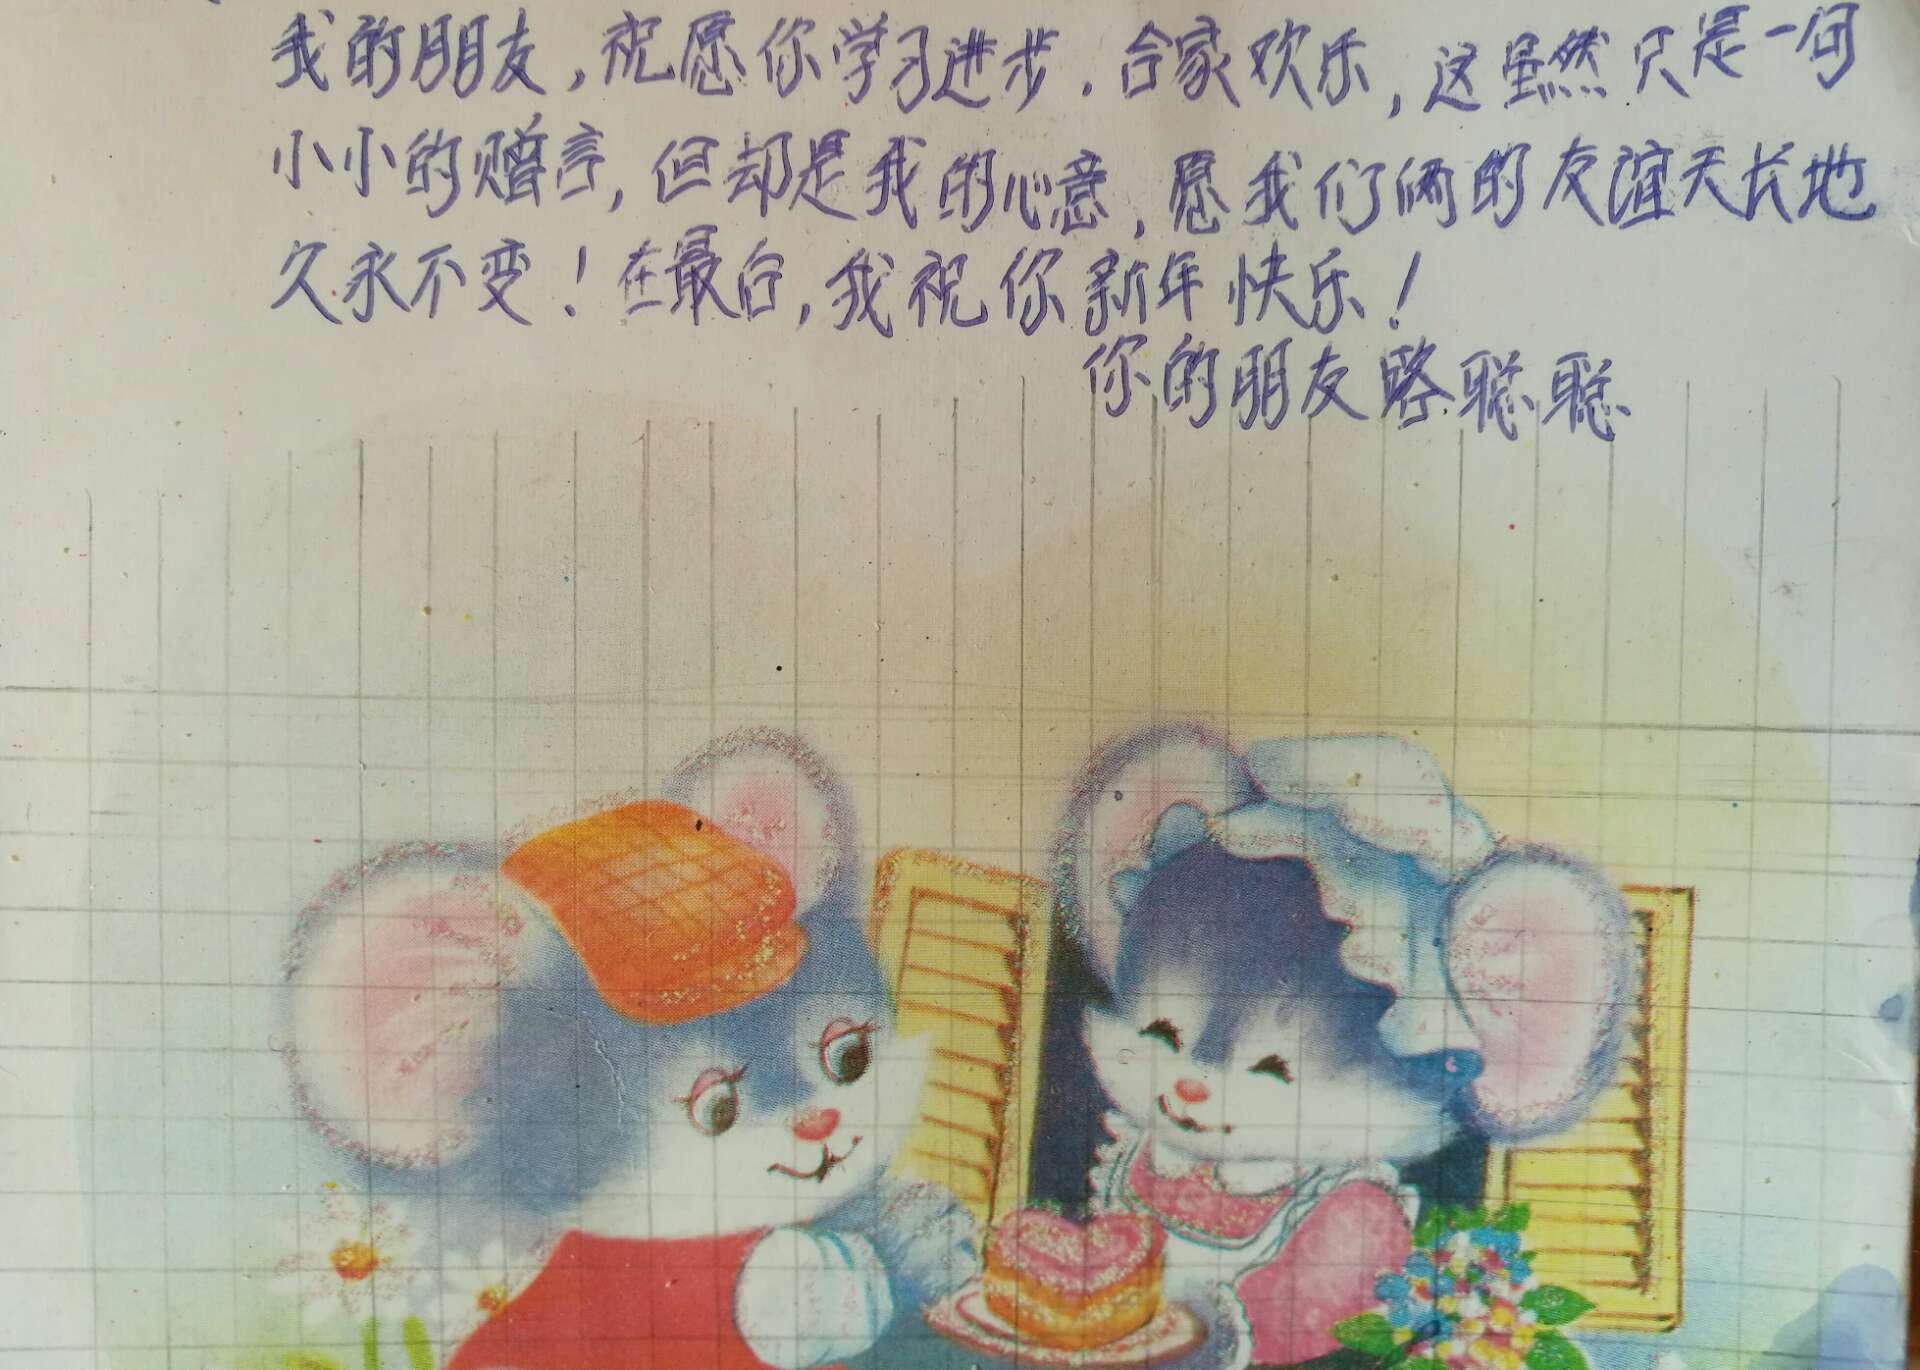 我的朋友,祝愿你学习进步.合家欢乐,这虽然只是一句
小小的赠言,但却是我的心意,愿我们俩的友谊天长地
久永不变!在最后,我祝你新年快乐!
你的朋友 聪聪